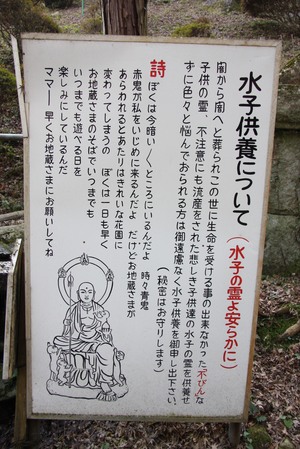 水子供養について（水子の霊よ安らかに）
闇から闇へと葬られこの世に生命を受ける事の出来なかった不びんな
子供の霊、不注意にも流産をされた悲しき子供達の水子の霊を供養せ
ずに色々と悩んでおられる方は御遠慮なく水子供養を御申し出下さい。
（秘密はお守りします）
詩 ぼくは今暗い〳〵ところにいるんだよ 時々青鬼
赤鬼が私をいじめに来るんだよ だけどお地蔵さまが
あらわれるとあたりはきれいな花園に
変わってしまうの ぼくは一日も早く
お地蔵さまのそばでいつまでも
いつまでも遊べる日を
楽しみにしているんだ
ママー早くお地蔵さまにお願いしてね